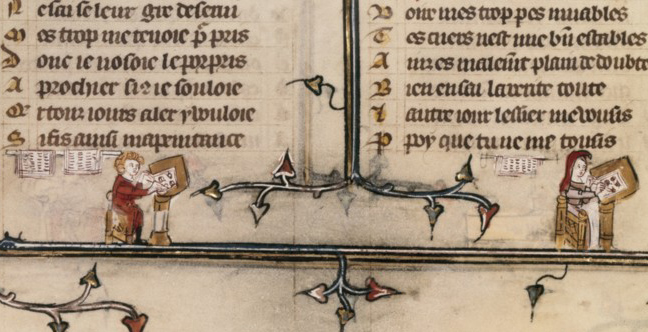 N e sai se leur gre deserui
M es trop me tenoie p̃ pris
D ont ie nosoie le porpris
A prochier si 9 ie souloie
E t touz iours aler y vouloie
S i fis ainsi ma penitance
mes trop pes muiables
T es cuers nest mie bn̄ estables
A ins es malem̄t plain de doubte
B ien en sai la verite toute
l autre iour lessier me vousis
P poy que tu ne me tousis